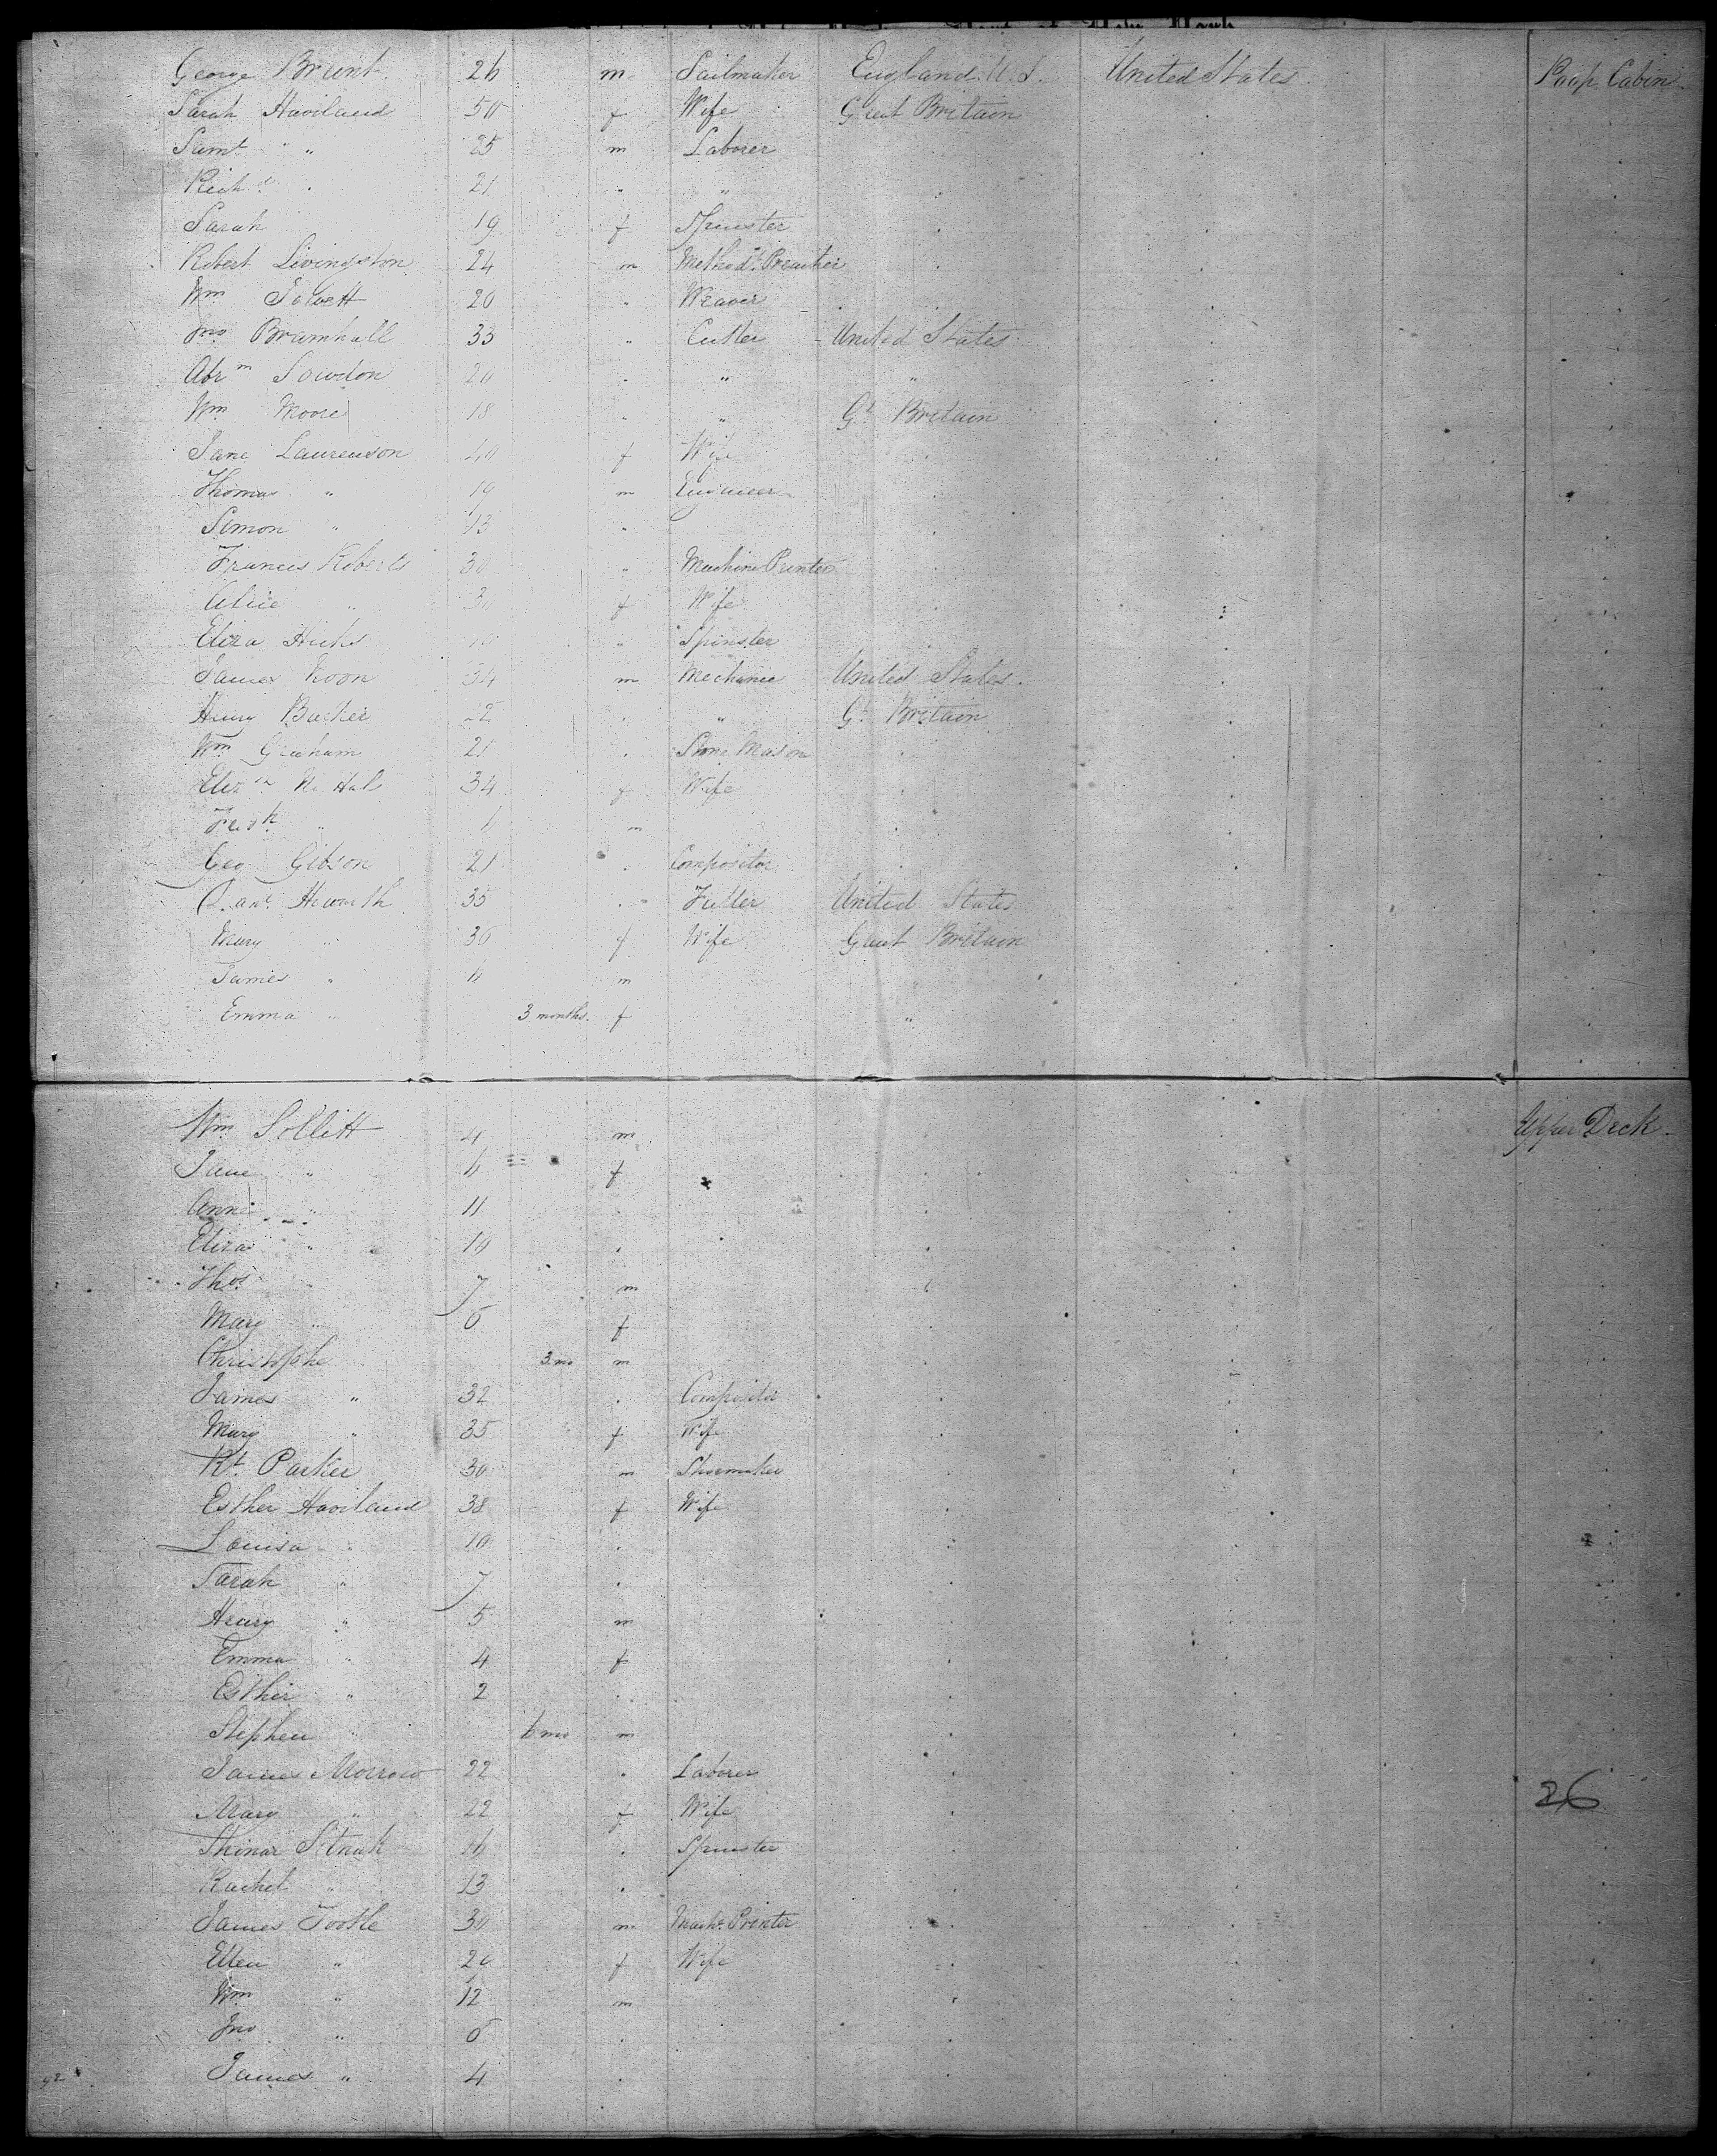 George Brunt 26 m Sailmaker England U.S. United States Poop Cabin
Sarah Haviland 50 f Wife Great Britain
Saml " 25 m Laborer
Richd 21 " "
Sarah 19 f Spinster
Robert Livingston 24 m Methodt Preacher
Wm 20 " Weaver
Jno Bramhall 33 " Cutler United States
Abrm Sowdon 20 " "
Wm Moore 18 " " Gt Britain
Jane Laurenson 40 f Wife
Thomas " 19 m Engineer
Simon " 13 "
Francis Roberts 30 " Machine Printer
Alice " 30 f Wife
Eliza Hicks " Spinster
James Noon 34 m Mechanic United States
Henry Barker 22 " Gt Britain
Wm Graham 21 Stone Mason
34 f Wife
" m
Geo Gibson 21 Compositor
Haworth 35 Fuller United States
Mary " 36 f Wife Great Britain
James " 6 m "
Emma " 3 months f "
Wm Sollitt 4 m Upper Deck
Jane " 6 f
Ann " 11
Eliza " 10
Thos 7 m
Mary " 6 f
Christopher 3 mo m
James " 32 Compositor
Mary " 35 f Wife
Rt Parker 30 m Shoemaker
Esther Haviland 38 f Wife
Louisa " 10
Sarah " 7
Henry " 5 m
Emma " 4 f
Esther " 2
Stephen " 6 mo m
James Morrow 22 Laborer
Mary " 22 f Wife 26
16 Spinster
Rachel " 13
James Tootle 30 m Mache Printer
Ellen " 29 f Wife
Wm " 12 m
Jno " 6
James " 4